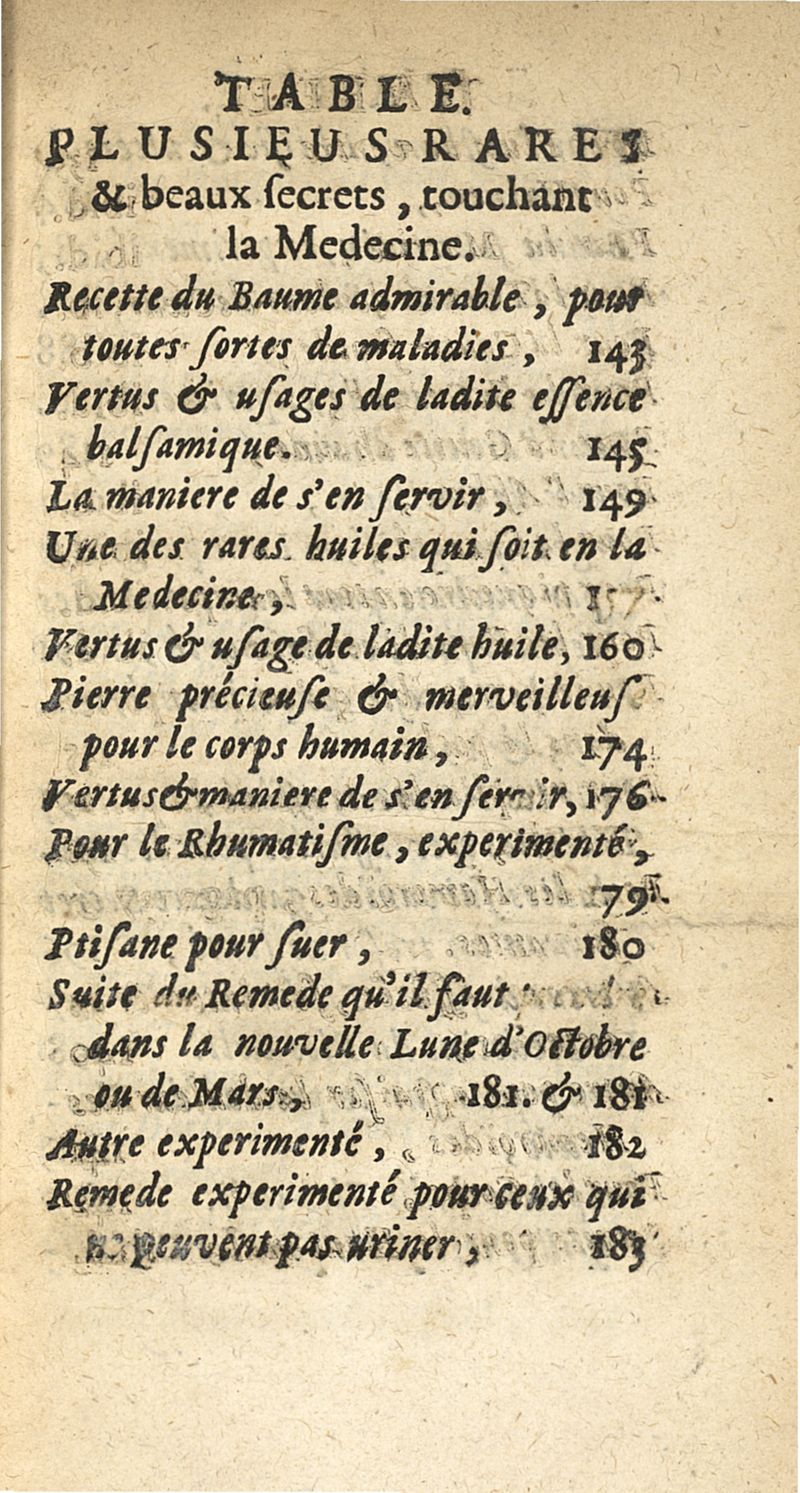 TABLE.
PLUSIEUS RARES
& beaux ſecrets, touchant
la Medecine.
Recette du Baume admirable, pour
toutes ſortes de maladies, 143
Vertus & uſages de ladite eſſence
balſamique. 145
La maniere de s'en ſervir, 149
Une des rares huiles qui ſoit en la
Medecine,
Vertus & uſage de ladite huile, 160
Pierre précieuſe & merveilleuſ
pour le corps humain, 174
Vertus & maniere de s'en ſervir, 176
Pour le Rhumatiſme, experimenté,
79
Ptiſane pour ſuer, 180
Suite du Remede qu'il faut
dans la nouvelle Lune d'Octobre
ou de Mars, 181. & 181
Autre experimenté, 182
Remede experimenté pour ceux qui
peuvent pas uriner, 183